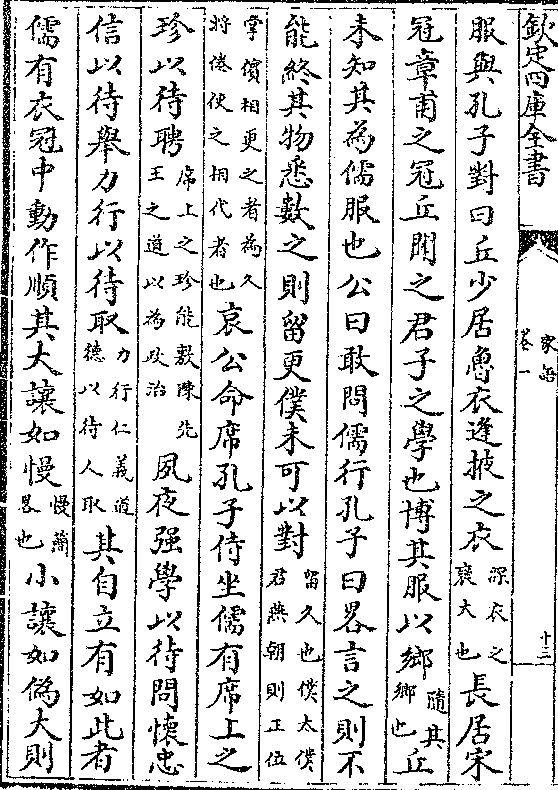 欽定四庫全書
家語
卷一
十三
服與孔子對曰丘少居魯衣逢掖之衣深衣之褎大也長居宋
冠章甫之冠丘聞之君子之學也博其服以鄉隨其鄉也丘
未知其為儒服也公曰敢問儒行孔子曰畧言之則不
能終其物悉數之則留更僕未可以對留久也僕太僕君燕朝則正位
掌儐相更之者為久將倦使之相代者也哀公命席孔子侍坐儒有席上之
珍以待聘席上之珍能敷陳先王之道以為政治夙夜强學以待問懷忠
信以待舉力行以待取力行仁義道德以待人取其自立有如此者
儒有衣冠中動作順其大讓如慢慢簡畧也小讓如偽大則